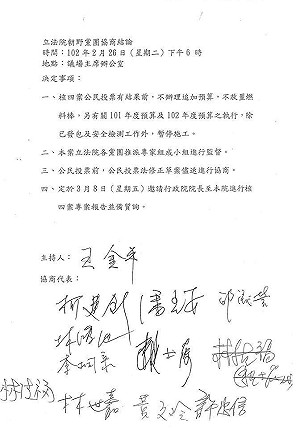 立法院朝野黨團協商結論
時間：102 年 2 月 26 日（星期二）下午 6 時
地點：議場主席辦公室
決定事項：
一、核四案公民投票有結果前，不辦理追加預算，不放置燃
料棒，另有關 101 年度預算及 102 年度預算之執行，除
已發包及安全檢測工作外，暫停施工。
二、本案立法院各黨團推派專家組成小組進行監督。
三、公民投票前，公民投票法修正草案儘速進行協商。
四、定於 3 月 8 日（星期五）邀請行政院院長至本院進行核
四案專案報告並備質詢。
主持人：王金平
協商代表：
柯建銘 潘孟安
李桐豪 賴士葆
林世嘉 黃文玲 許忠信